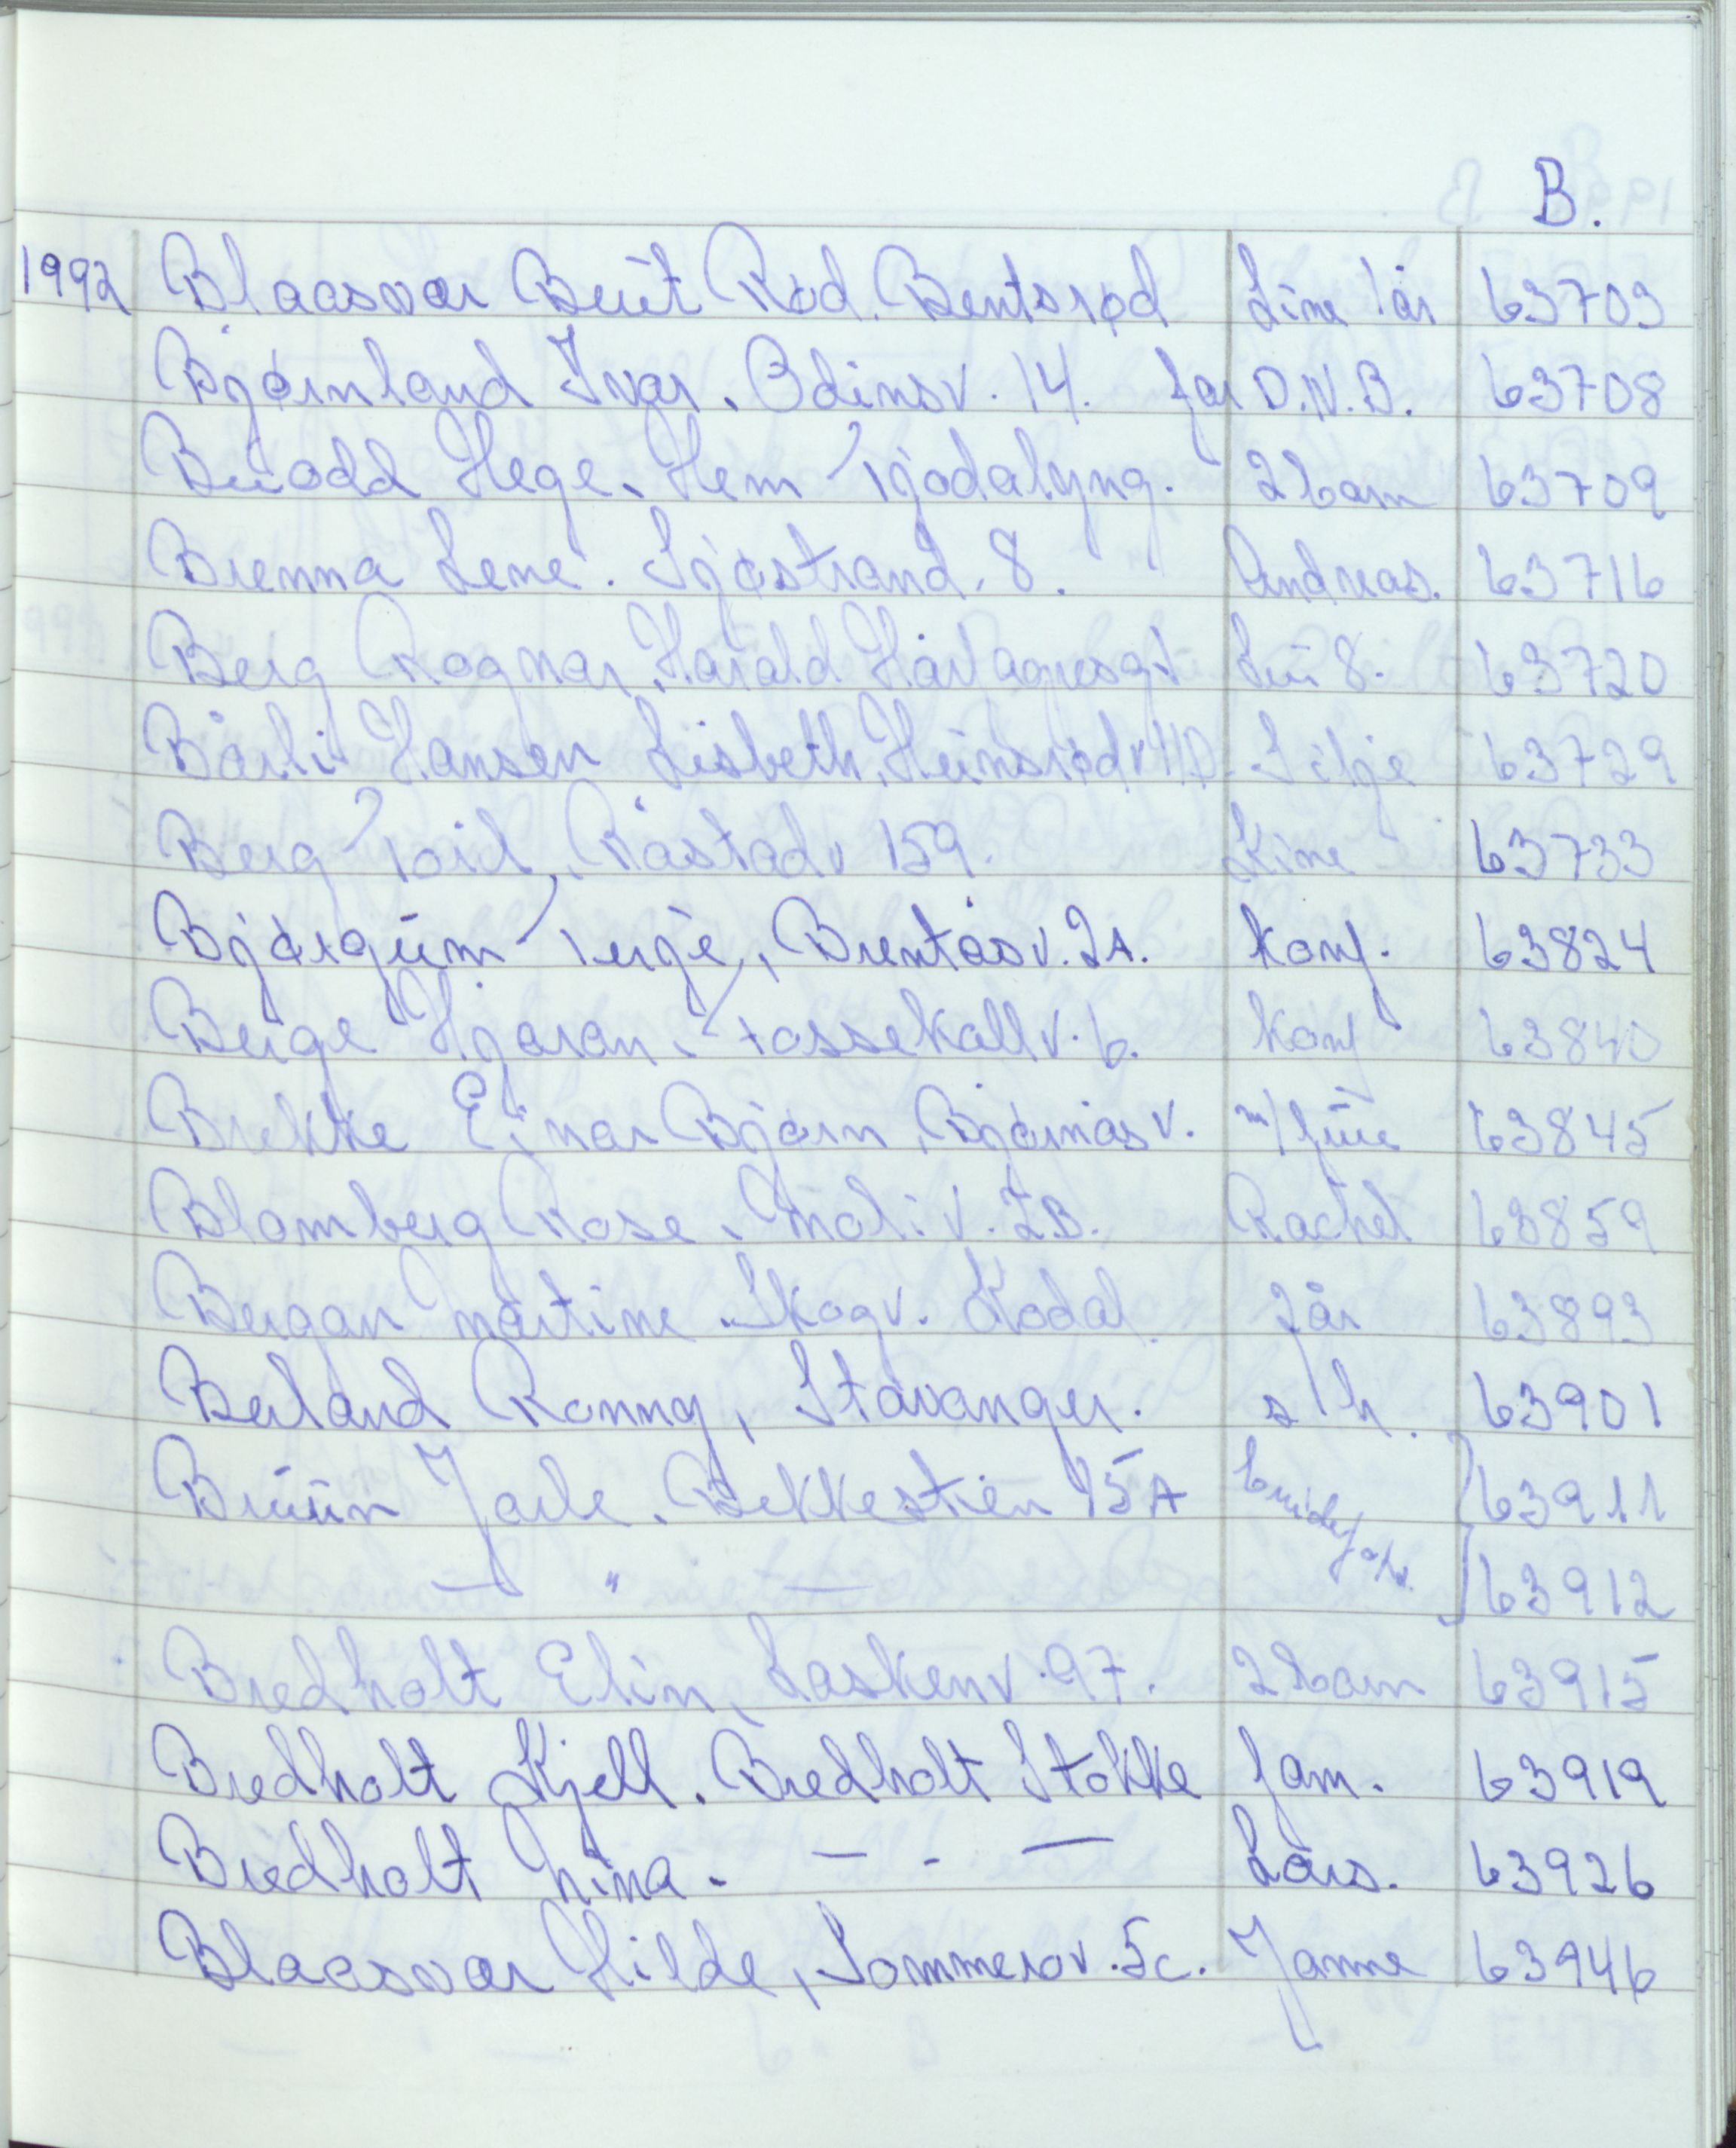 B.
1992 Blaasvær Berit Rød. Bentsrød Line 1år 63703
Bjørnland Ivar. Odinsv. 14. far D.N.B. 63708
Buodd Hege. Hem Tjodalyng. 2barn 63709
Brenna Lene. Sjøstrand. 8. Andreas. 63716
Berg Ragnar, Harald Hårfagresgt 8. 63720
Bårli Hansen Lisbeth, Heimsrødv 11D. Silje 63729
Berg Toril, Råstadv 159. Stine 63733
Bjørgum Terje, Brentåsv. 2A. Konf. 63824
Berge Hjøran. Fossekallv. 6. Konf 63840
Brekke Einar Bjørn, Bjørnåsv. m/frue 63845
Blomberg Rose. Moliv. 2B. Rachel 63859
Bergan Martine. Skogv. Kodal. 2år 63893
Berland Ronny, Stavanger. s/h. 63901
Bruun Jarle. Bekkestien 15A brudef 63911
— " — 63912
Bredholt Elin, Laskenv. 97. 2barn 63915
Bredholt Kjell. Bredholt Stokke fam. 63919
Bredholt Nina. — . — Lars. 63926
Blaasvær Hilde, Sommerov. 5c. Janne 63946